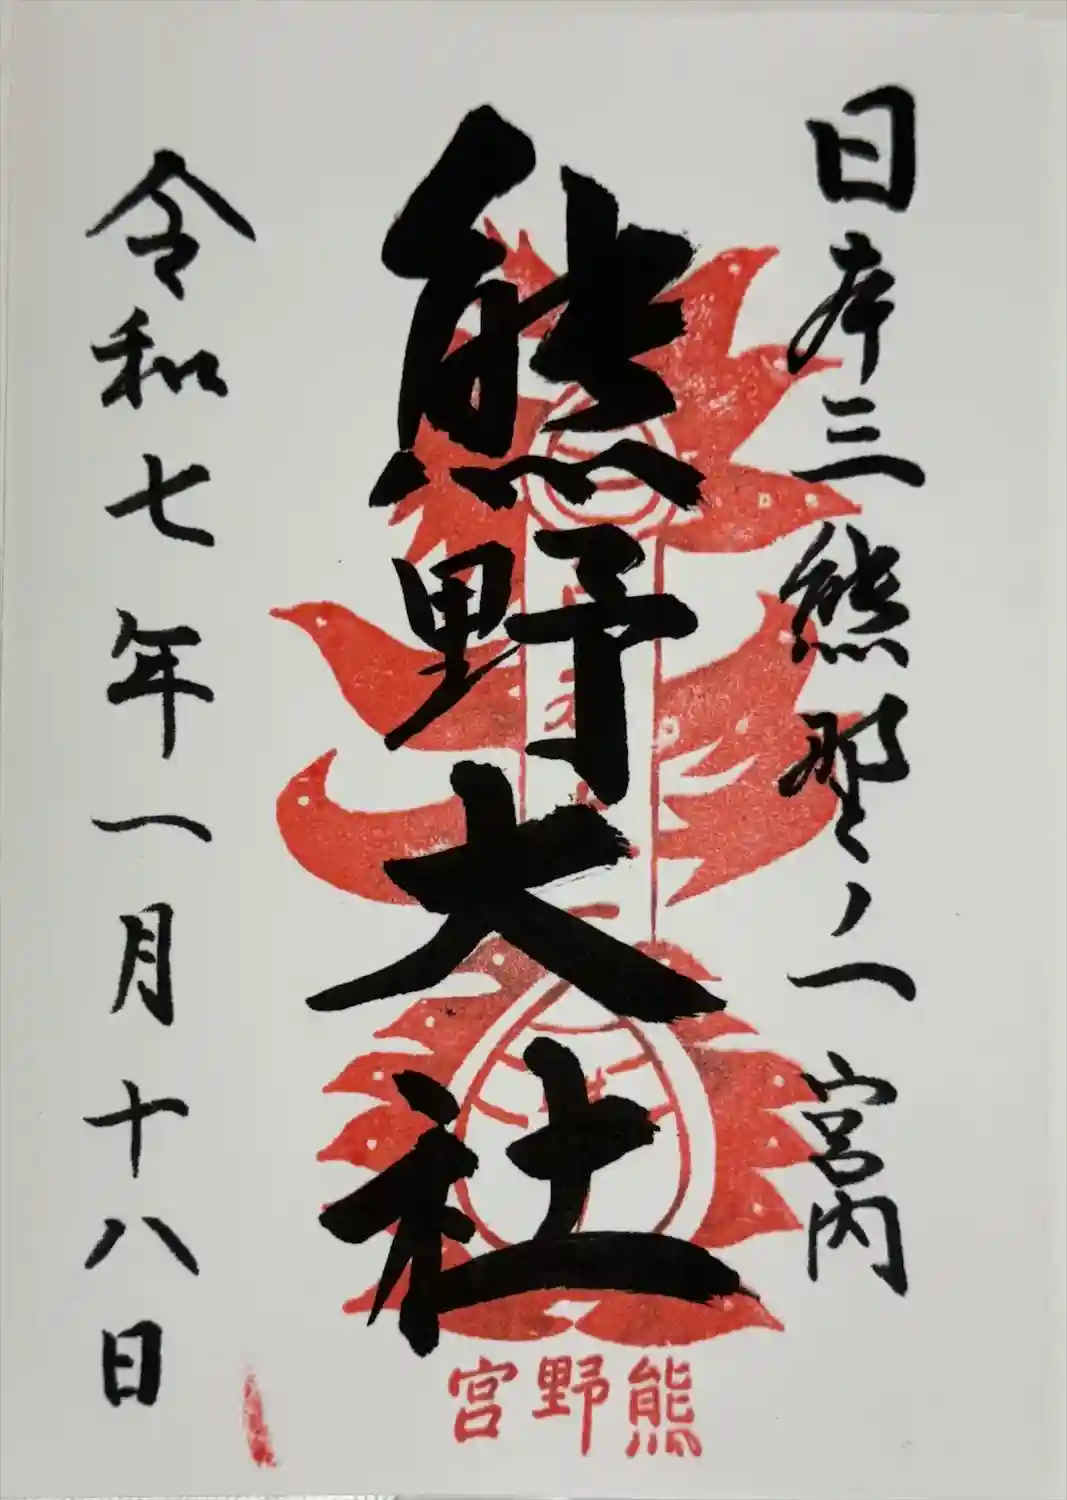 日本三熊野ノ一宮内
熊野大社
令和七年一月十八日
熊野宮